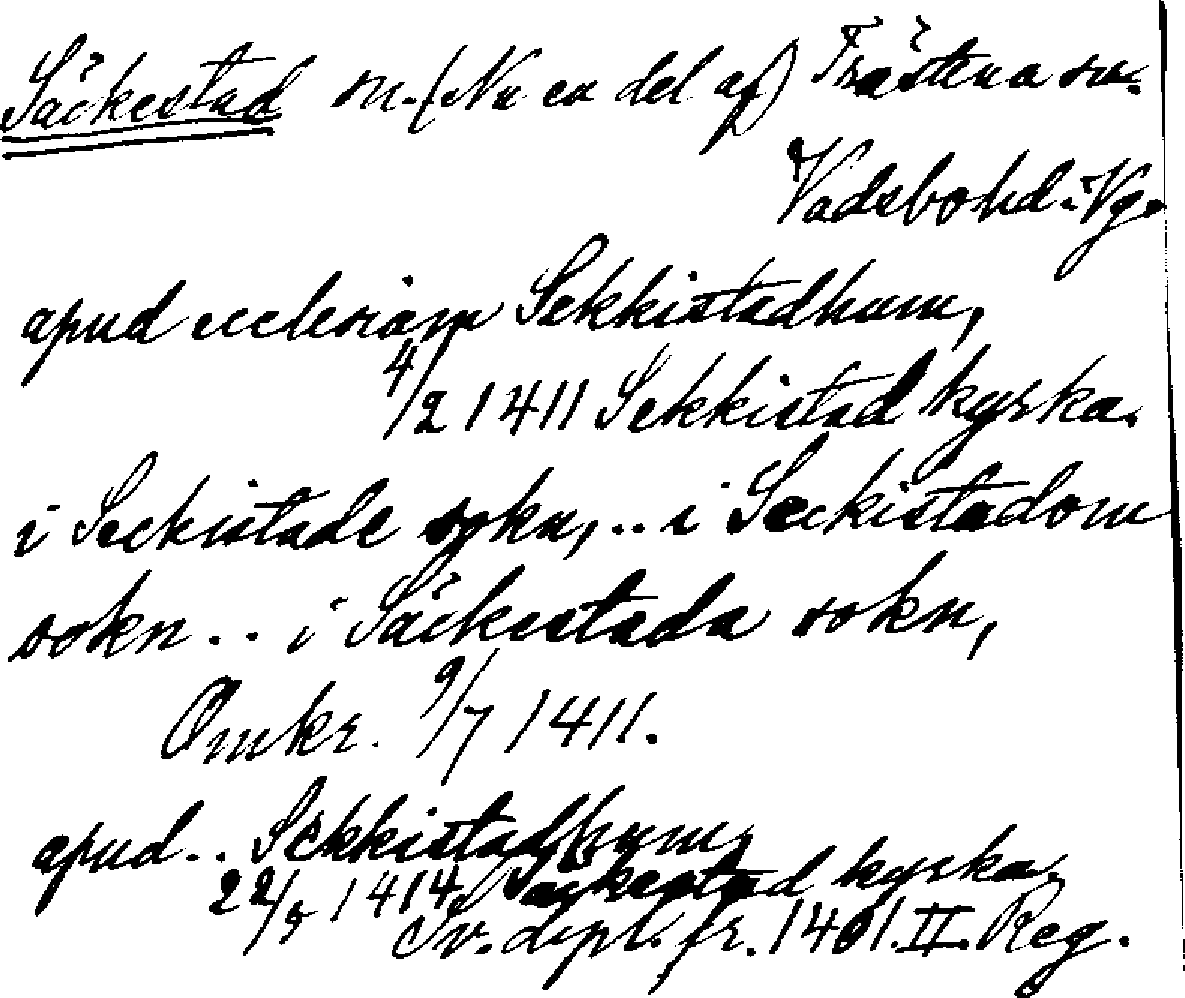 Säckestad sn. (Nu en del af) Trästena sn.
Vadsbo hd. Vg.
apud ecclesiam Sekkistadhum,
4/2 1411 Sekkistad kyrka.
i Seckistade sokn, .. i Seckistadom
sokn .. i Säckestada sokn,
Omkr. 9/7 1411.
apud .. Sekkistadhum,
22/5 1414. Säckestad kyrka.
Sv. dipl. fr. 1401. II. Reg.